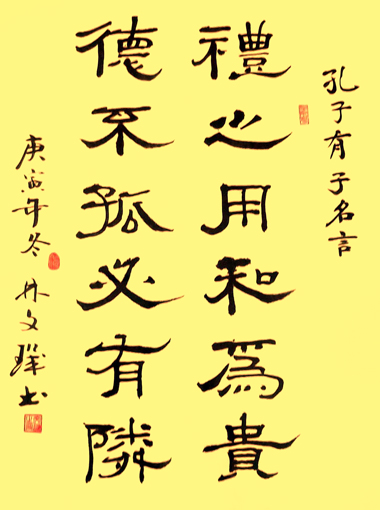 孔子有子名言
禮之用和為貴
德不孤必有隣
庚寅年冬林文璀书